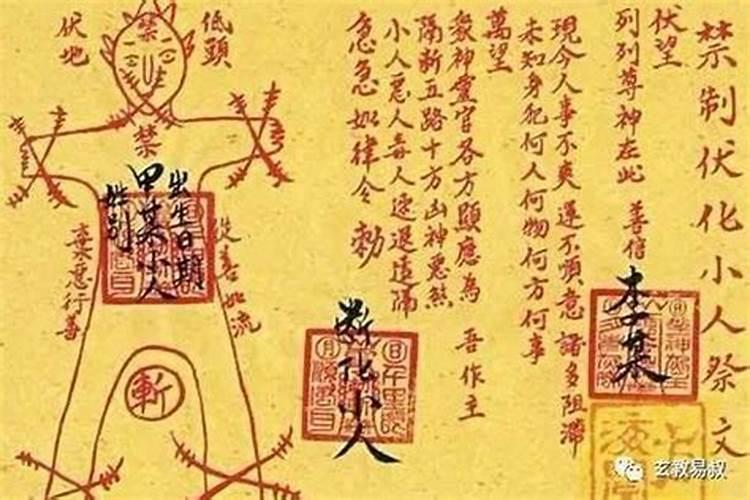 禁制伏化小人祭文
伏望
列列尊神在此 善信 李某
現今人事不爽 運不順意 諸多阻滯
未知身犯何人何物何方何事
萬望
衆神靈官各方顯應為 吾作主
隔斷五路十方凶神惡煞
小人惡人毒人速退遠隔
急急如律令 勅
断化小人
低頭
禁
伏地
禁
出生日期
甲某小人
姓別
從善如流
棄惡行善
斬
玄教易叔